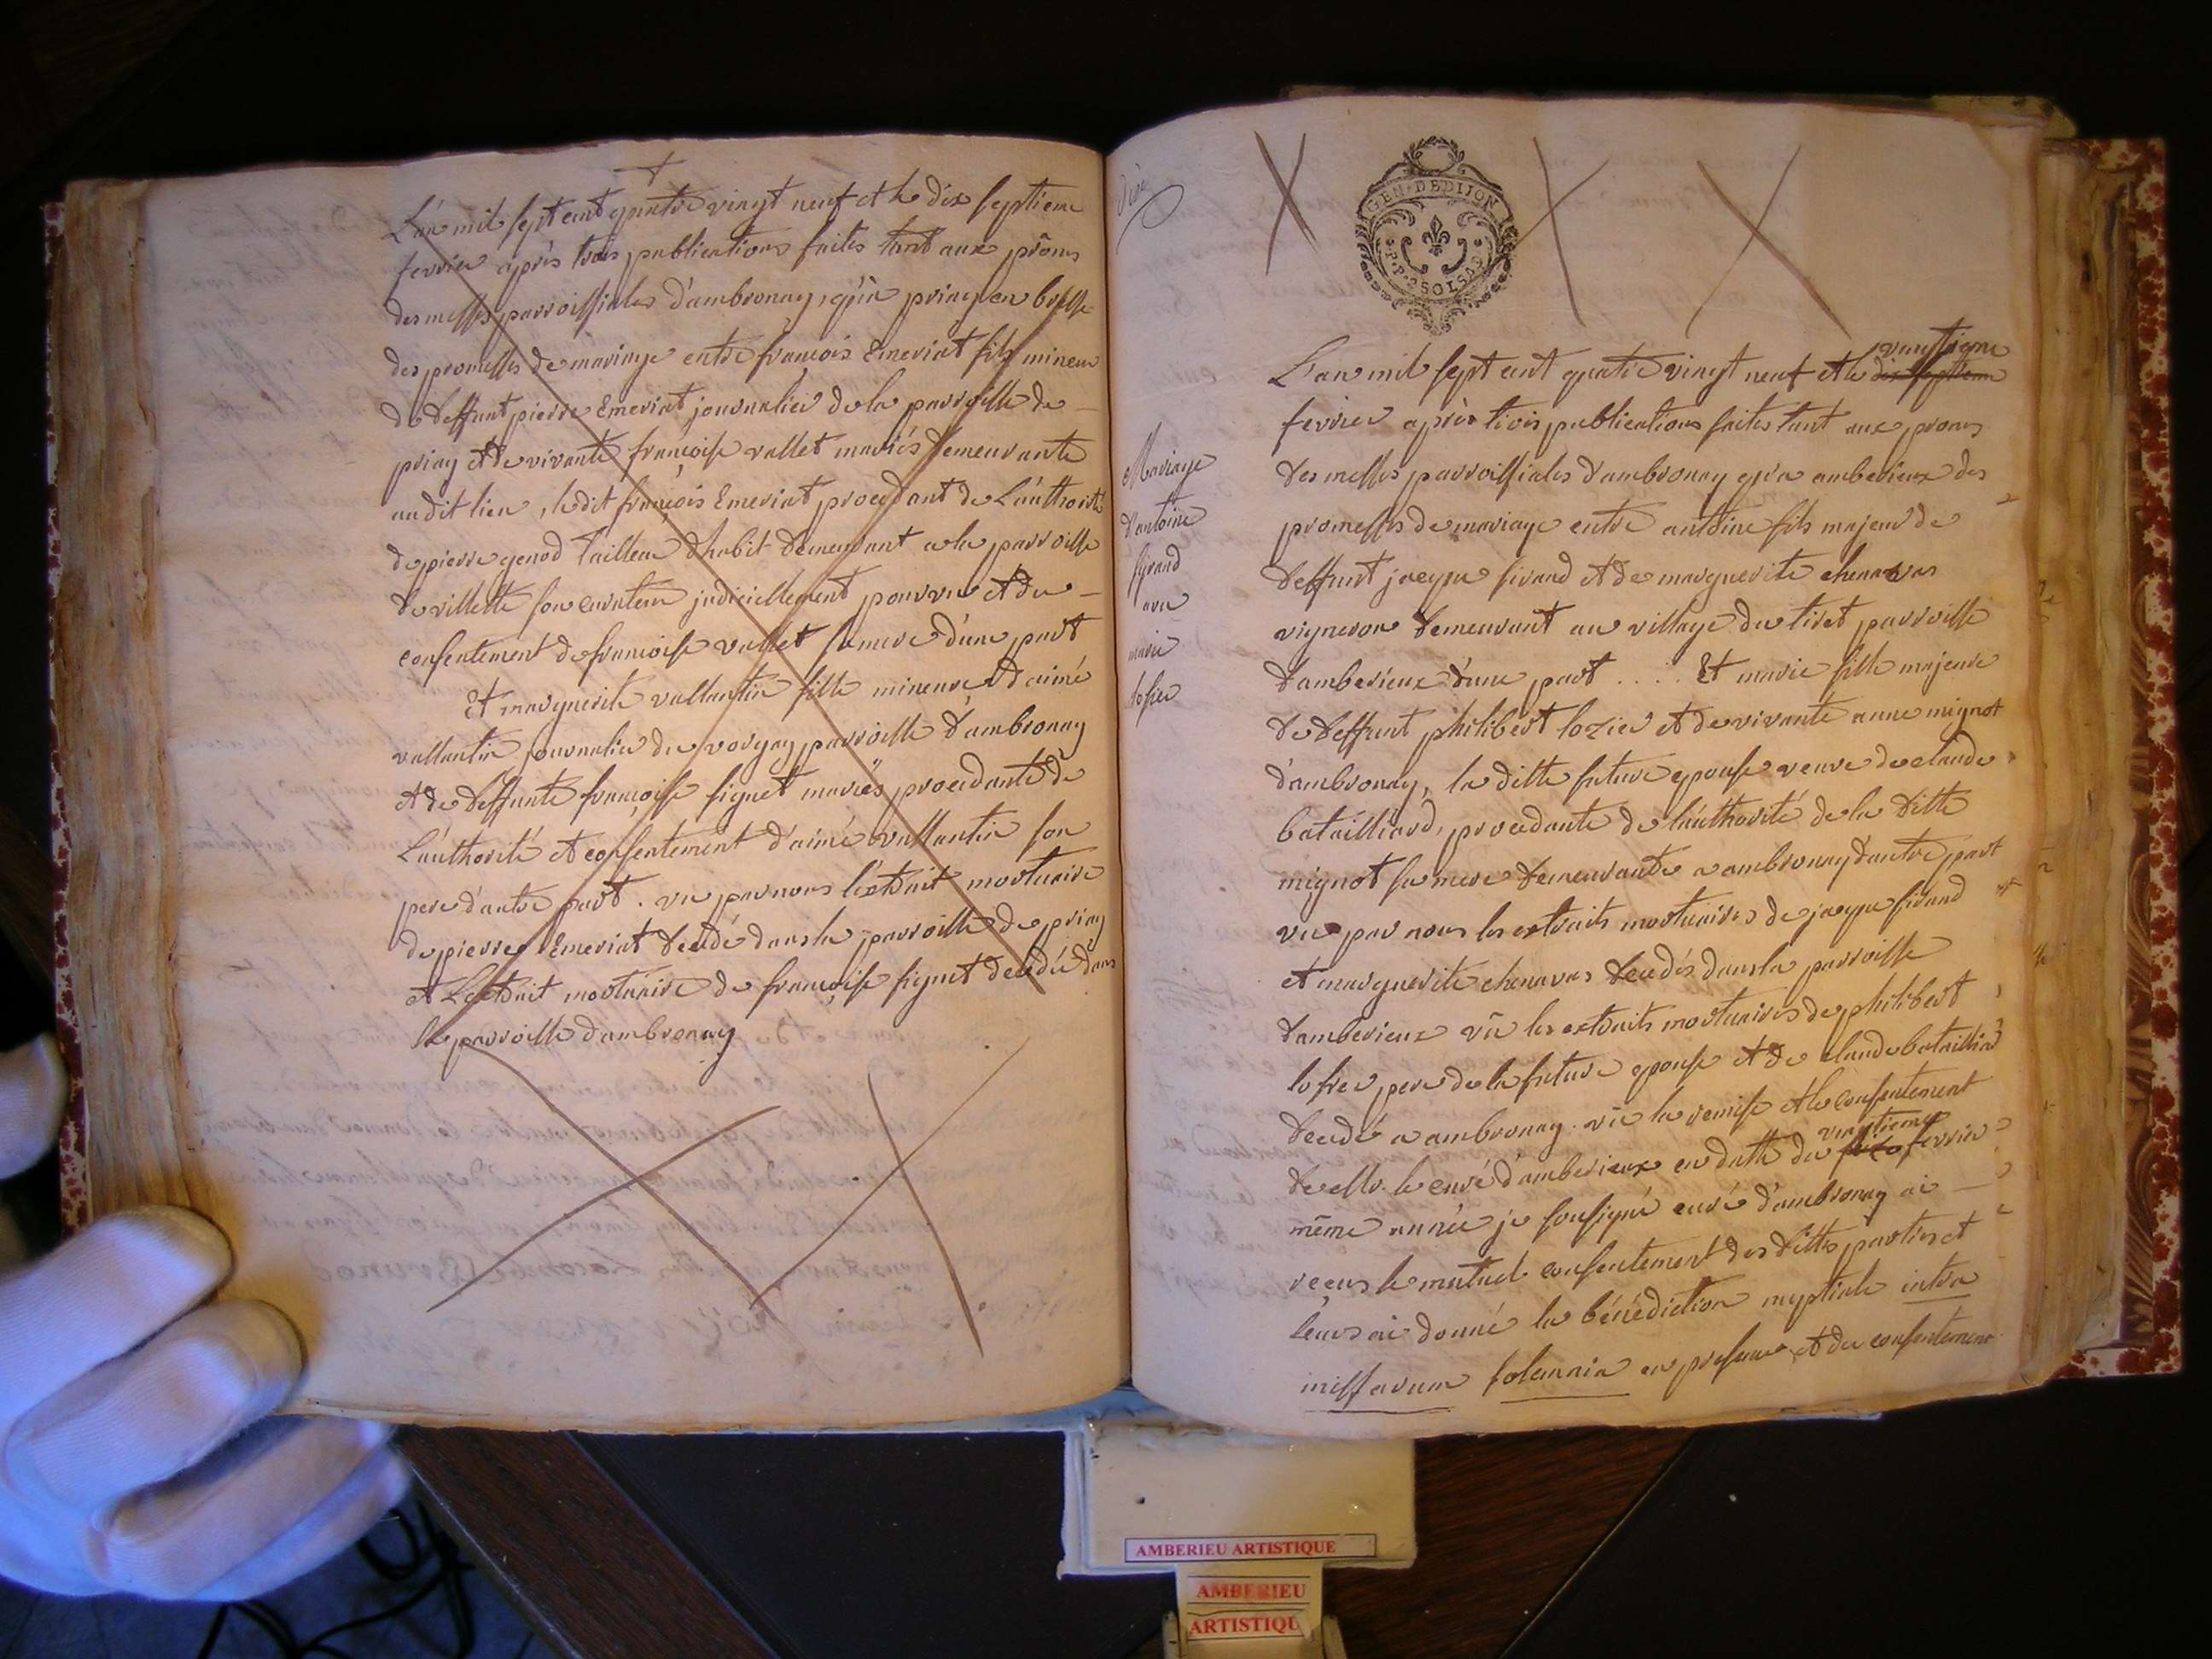 L'an mil sept cent quatre vingt neuf et le dix septieme
fevrier après trois publications faites tant aux prônes
des messes parroissiales d'ambronay, qu'a priay en bresse
des promesses de mariage entre françois Emeriat fils mineur
de deffunt pierre Emeriat journalier de la parroisse de
priay et de vivante françoise vallet mariés demeurante
audit lieu, ledit françois Emeriat procedant de L'authorité
de pierre genod Tailleur d'habit demeurant a la parroisse
de villette son curateur judiciellement pourvu et du
consentement de francoise vallet sa mere d'une part
Et marguerite vallantin fille mineure d'aimé
vallantin journalier du vorgey parroisse d'ambronay
et de deffunte françoise signet mariés procedante de
L'authorité et consentement d'aimé vallantin son
pere d'autre part. vu par nous l'extrait mortuaire
de pierre Emeriat decedé dans la parroisse de priay
et L'extrait mortuaire de françoise signet decedée dans
la parroisse d'ambronay
dix
GEN. DE DIJON
P.P. 2 SOLS
Mariage
d'antoine
sirand
avec
marie
losier
L'an mil sept cent quatre vingt neuf et le dix septieme vingtieme
fevrier après trois publications faites tant aux prones
des messes parroissiales d'ambronay qu'a amberieux des
promesses de mariage entre antoine fils majeur de
deffunt jacque sirand et de marguerite chenavas
vigneron demeurant au village du tiret parroisse
d'amberieux d'une part .... Et marie fille majeure
de deffunt philibert lozier et de vivante anne mignot
d'ambronay, la ditte future epouse veuve de claude
batailliard, procedante de l'authorité de la ditte
mignot sa mere demeurante a ambronay d'autre part
vu par nous les extraits mortuaires de jacque sirand
et marguerite chenavas decedés dans la parroisse
d'amberieux vû les extraits mortuaires de philibert
losier pere de la future epouse et de claude batailliard
decedé a ambronay. vû la remise et le consentement
de Mr. le curé d'amberieux en datte du vingtieme fevrier
même année je soussigné curé d'ambronay ai
reçus le mutuel consentement des dittes parties et
leurs ai donné la bénédiction nuptiale intra
missarum solemnia en presence et du consentement
AMBERIEU ARTISTIQUE
AMBERIEU
ARTISTIQU